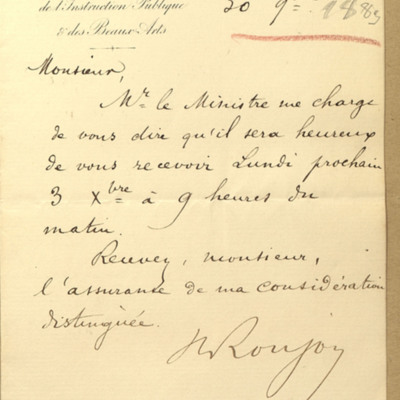 de l'Instruction Publique
& des Beaux-Arts
30 9= 1883
Monsieur,
Mr. le Ministre me charge
de vous dire qu'il sera heureux
de vous recevoir Lundi prochain
3 Xbre à 9 heures du
matin.
Recevez, monsieur,
l'assurance de ma considération
distinguée.
H Roujon